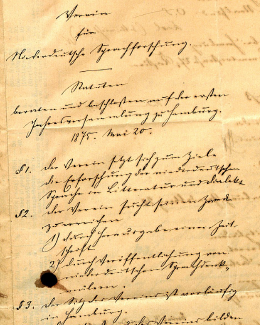 Verein
für
Niederdeutsche Sprachforschung.
Statuten
beraten und beschlossen auf der ersten
Jahresversammlung zu Hamburg.
1875. Mai 20.
§1. Der Verein setzt sich zum Ziele
die Erforschung der niederdeutschen
Sprache in Litteratur und Dialekt
§2. Der Verein sucht seinen Zweck
zu erreichen
1) durch Herausgabe einer Zeit
schrift
2) durch Veröffentlichung von
niederdeutschen Sprachdenk-
mälern.
§3. Der Sitz des Vereins ist vorläufig
in Hamburg.